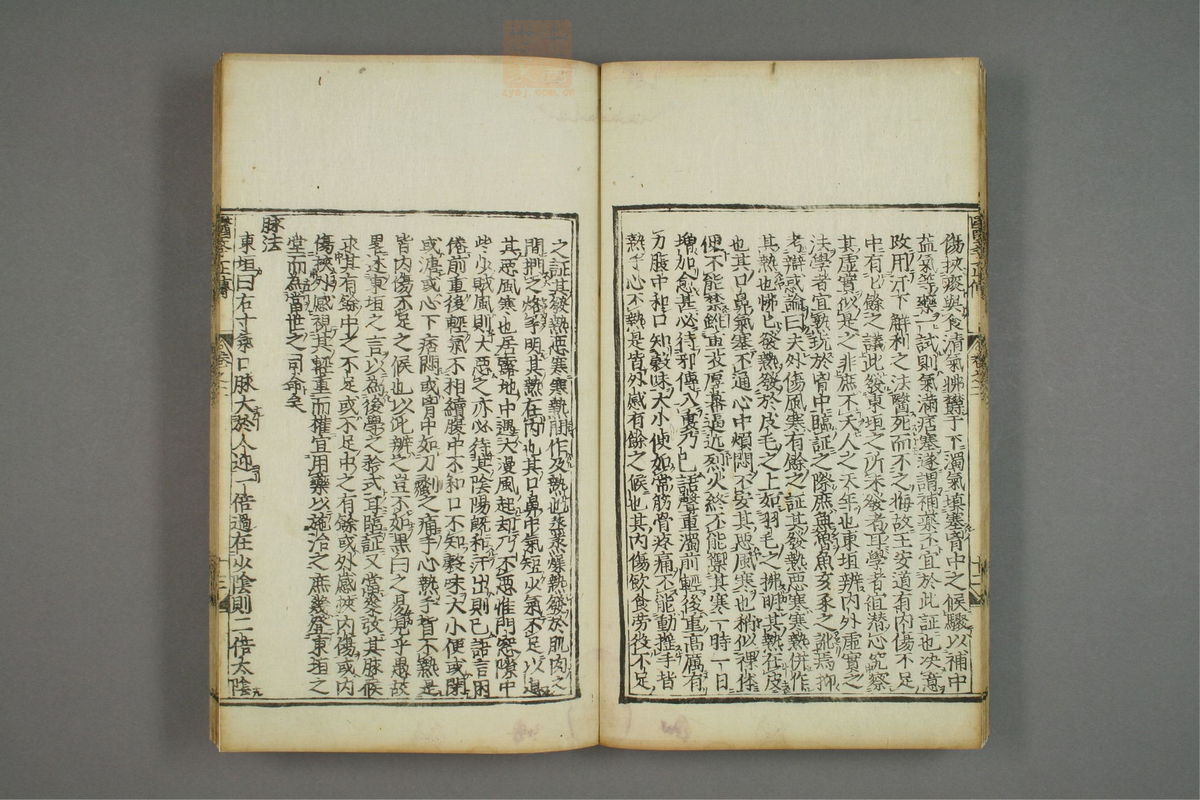 傷挾痰與食清氣怫欝于下濁氣填塞胷中之候驟以補中
益氣等藥一試則氣滿痞塞遂謂補藥不宜於此証也决意
攻用汗下解利之法醫死而不之悔故王安道有內傷不足
中有有餘之議此發東垣之所未發者耳學者宜潜心究察
其虛實似是之非庶不夭人之天年也東垣辨內外虛實之
法學者宜熟玩於胷中臨証之際庶無魯魚亥豕之訛焉抑
考辯惑論曰夫外傷風寒有餘之証其發熱惡寒寒熱併作
其熱也怫怫發熱發於皮毛之上如羽毛之拂明其熱在皮
也其口鼻氣塞不通心中煩悶不安其惡風寒也稍似裸體
便不能禁雖重衣厚幕逼近烈火終不能禦其寒一時一日
增加愈甚必待邪傳入裏乃已語聲重濁前輕後重高厲有
力腹中和口知穀味大小便如常筋骨疼痛不能動搖手背
熱手心不熱是皆外感有餘之候也其內傷飲食勞役不足
之証其發熱惡寒寒熱間作及熱也蒸蒸燥熱發於肌肉之
間捫之烙手明其熱在內也其口鼻中氣短少氣不足以息
其惡風寒也居露地中遇大漫風起却乃不惡惟門窓隙中
些少賊風則大惡之亦必待其陰陽旣和汗出則已語言困
倦前重後輕氣不相續腹中不和口不知穀味大小便或閉
或溏或心下痞悶或胷中如刀劙之痛手心熱手背不熱是
皆內傷不足之候也以此辨之豈不如黑白之易見乎愚故
畧述東垣之言以為後學之矜式耳臨証又當參攷其脉候
求其有餘中之不足或不足中之有餘或外感挾內傷或內
傷挾外感視其輕重而權宜用藥以施治之庶幾登東垣之
堂而為當世之司命矣
脉法
東垣曰右寸氣口脉大於人迎一倍過在少陰則二倍太陰